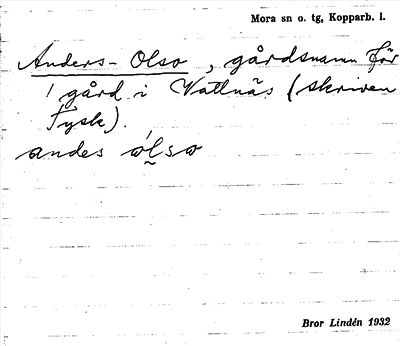 Mora sn o. tg, Kopparb. l.
Anders-Olso, gårdsnamn för
1 gård i Vattnäs (skriven
Tysk).
andes ólso
Bror Lindén 1932